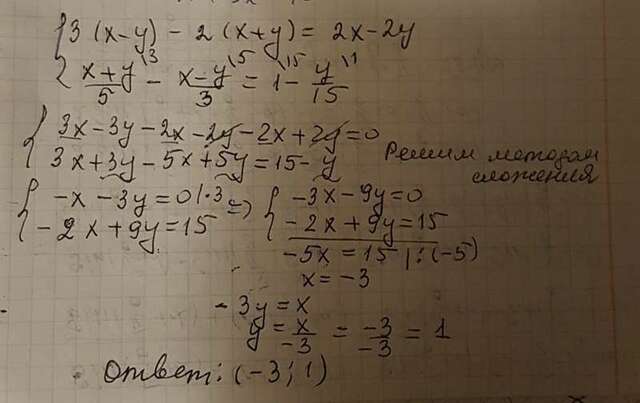 { 3(x-y) - 2(x+y) = 2x-2y
{ x+y/5 \3 - x-y/3 \5 = 1 \15 - y/15 \1
{ 3x-3y-2x-2y-2x+2y=0
{ 3x+3y-5x+5y=15-y Решим методом сложения
{ -x-3y=0 |·3 => { -3x-9y=0
{ -2x+9y=15 { -2x+9y=15
-5x=15 |:(-5)
x=-3
-3y=x
y = x/-3 = -3/-3 = 1
Ответ: (-3; 1)